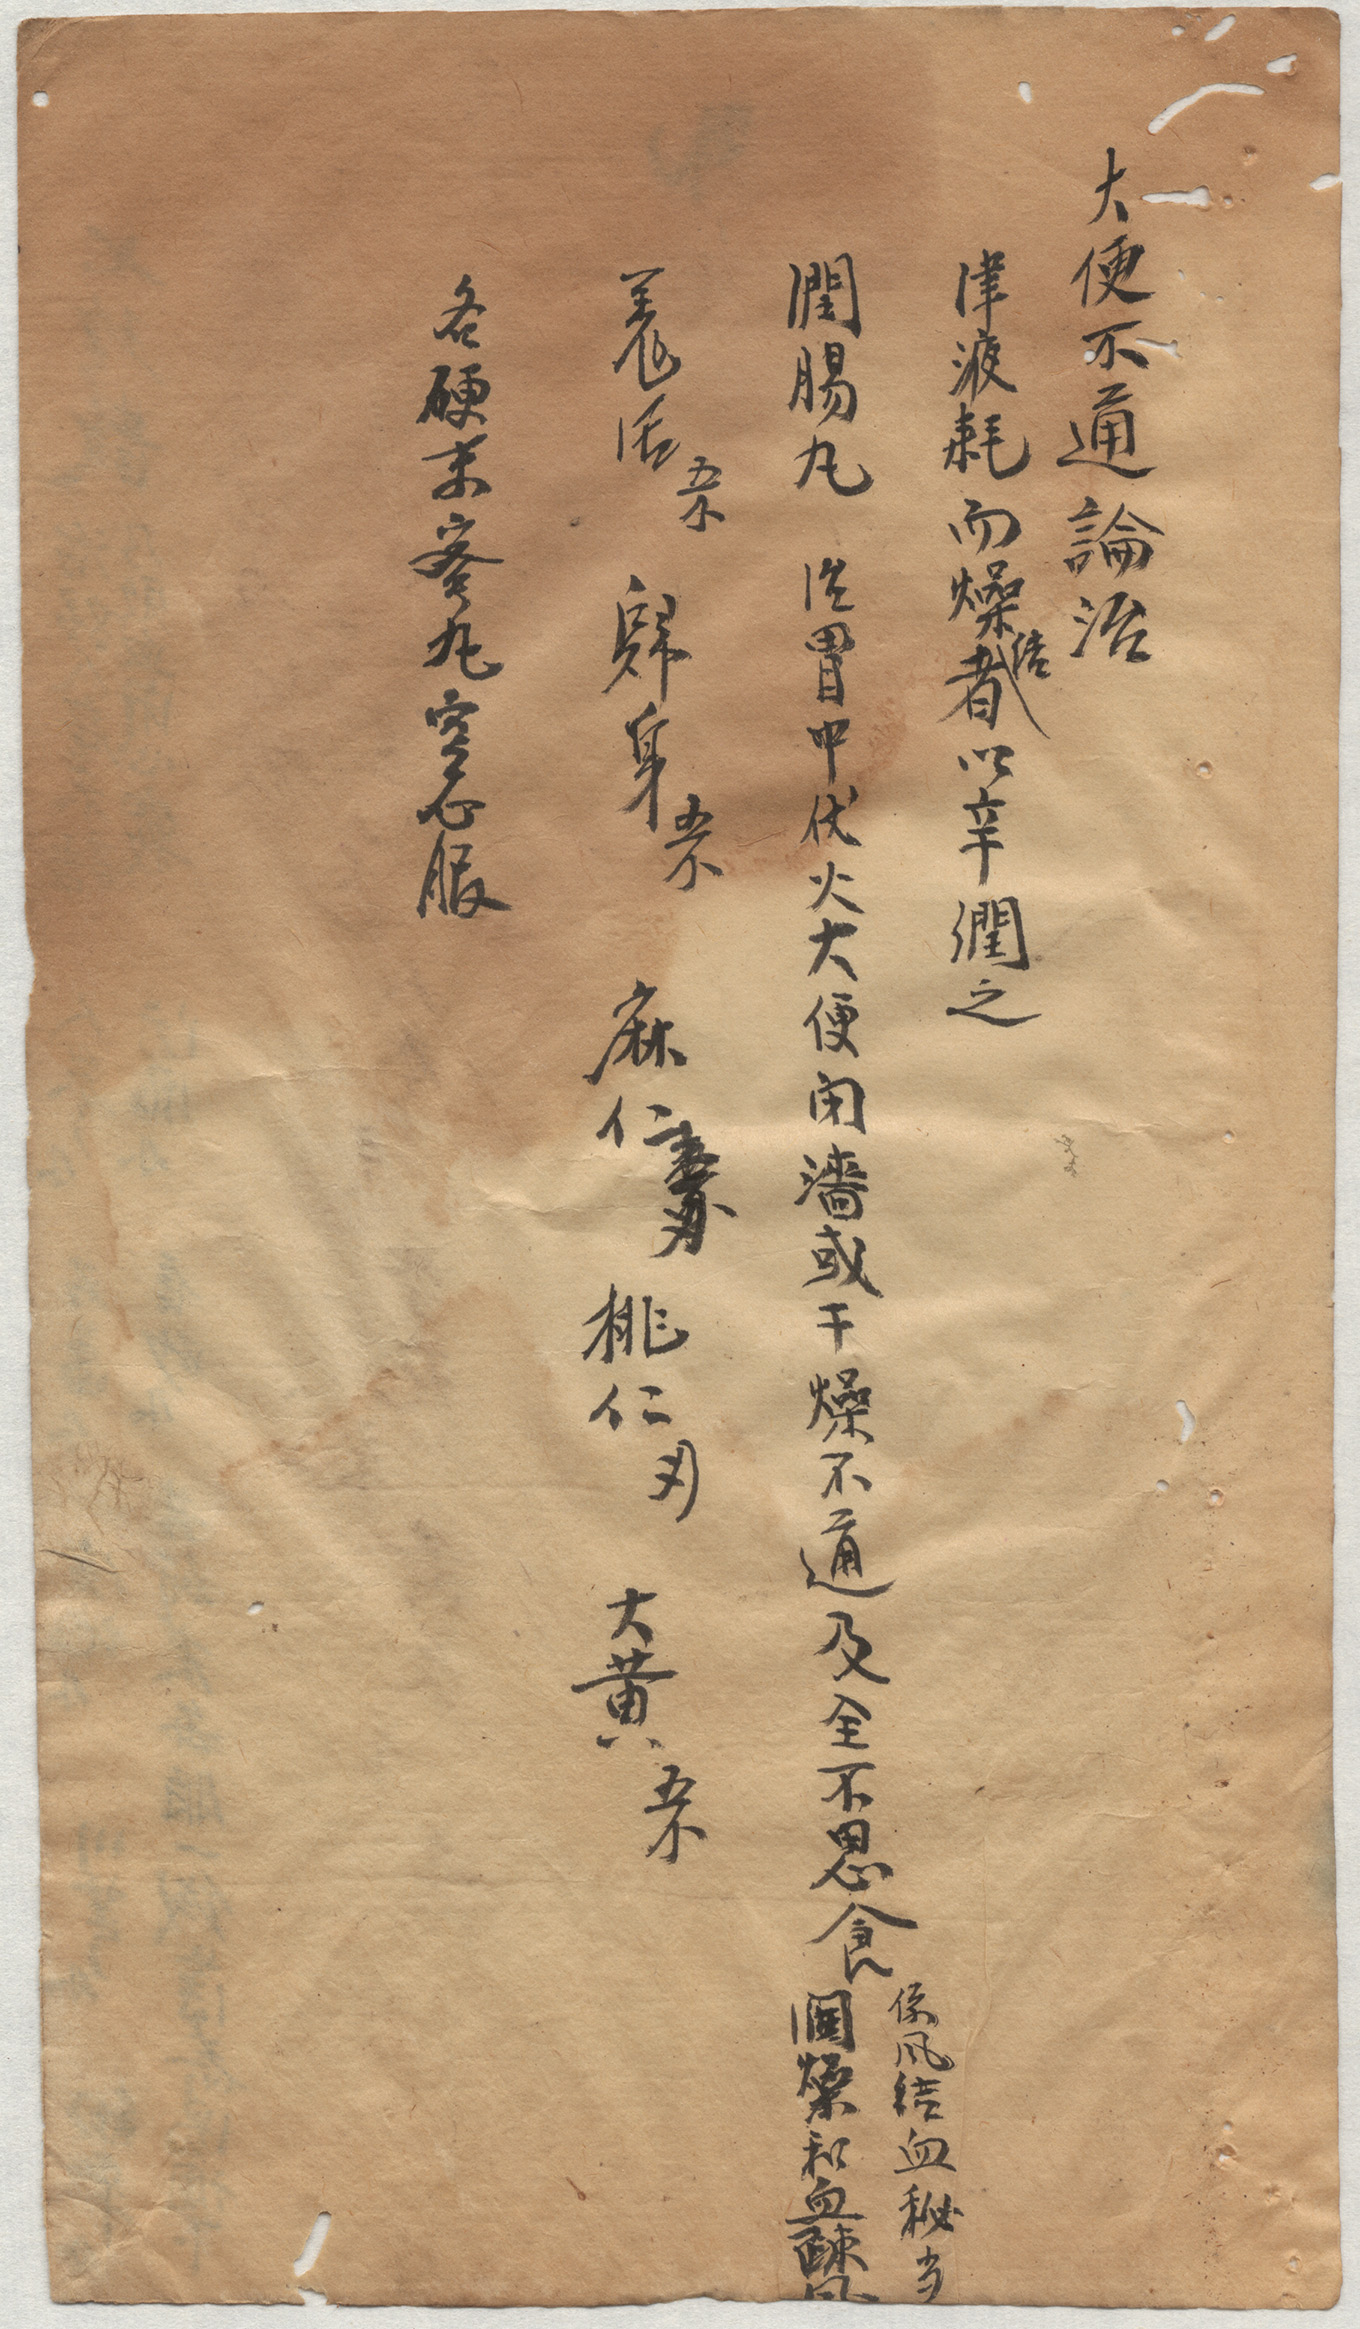 大便不通論治
津液耗而燥結者以辛潤之
潤腸丸 治胃中伏火大便闭濇或干燥不通及全不思食
係風結血秘当
潤燥和血疎風
羌活 歸身 麻仁 桃仁 大黄
各硬末蜜丸空心服